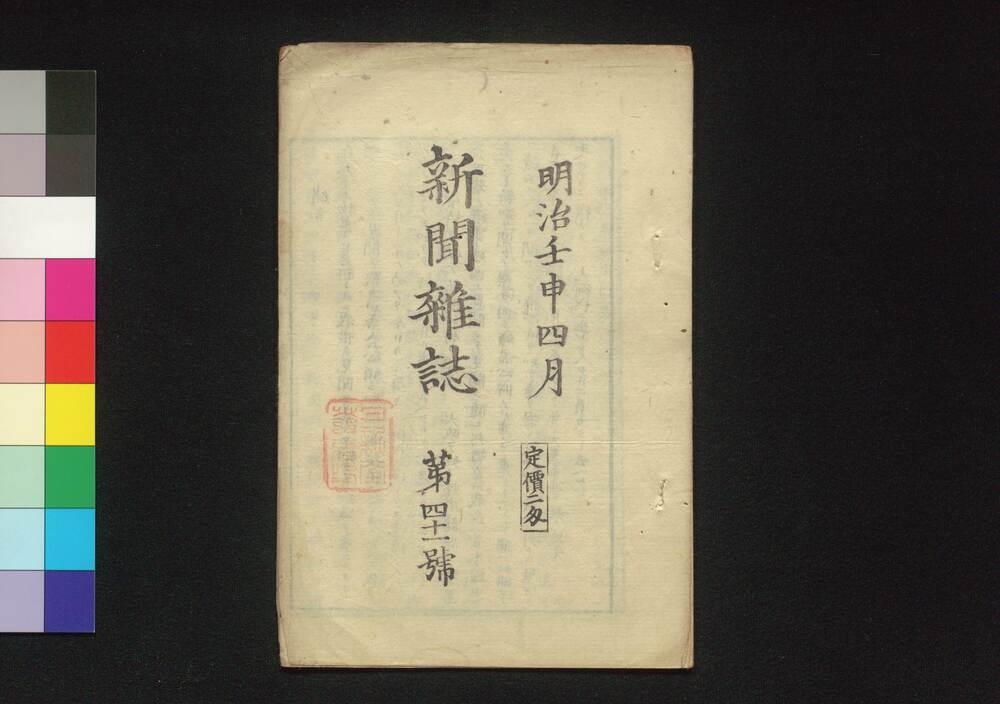 明治壬申四月
定價二匁
新聞雜誌
第四十一號